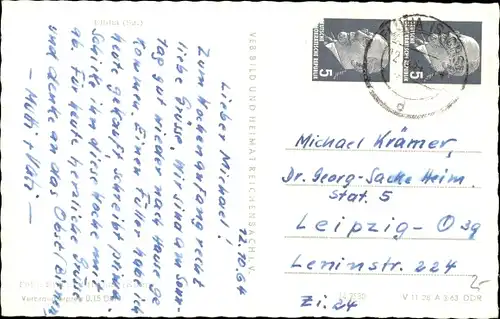 12.10.64
Lieber Michael!
Zum Wochenanfang recht
liebe Grüsse. Wir sind am Sonn-
tag gut wieder nach Hause ge
kommen. Einen Füller hab ich
heute gekauft, schreibt prima.
Schicke ihn diese Woche mit
ab. Für heute herzliche Grüsse
und denke an das Obst
– Mutti + Vati –
VEB BILD UND HEIMAT REICHENBACH I. V.
DEUTSCHE DEMOKRATISCHE REPUBLIK
5
DEUTSCHE DEMOKRATISCHE REPUBLIK
5
Michael Krämer,
Dr. Georg-Sacke Heim.
Stat. 5
Leipzig-O 39
Leninstr. 224
Zi. 24
2,-
V 11 28 A 2/63 DDR